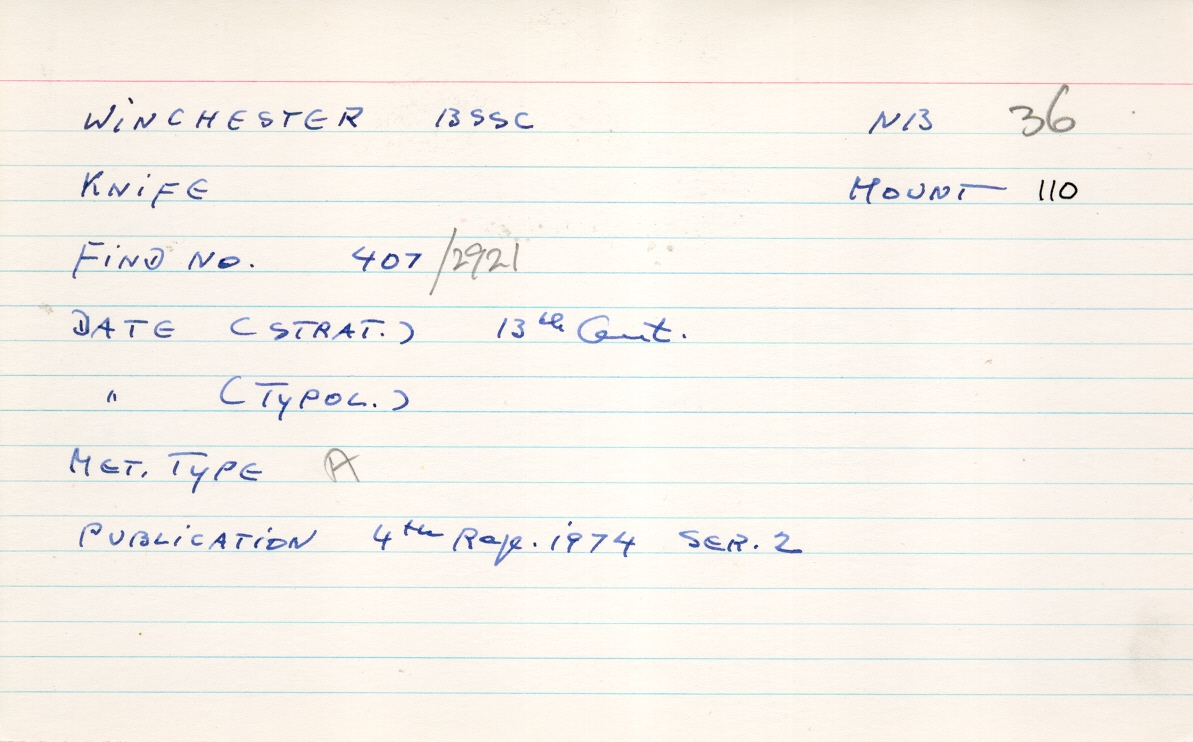 WINCHESTER BSSC NB 36
KNIFE MOUNT 110
FIND NO. 407/2921
DATE (STRAT.) 13th Cent.
" (TYPOL.)
MET. TYPE A
PUBLICATION 4th Rep. 1974 SER. 2